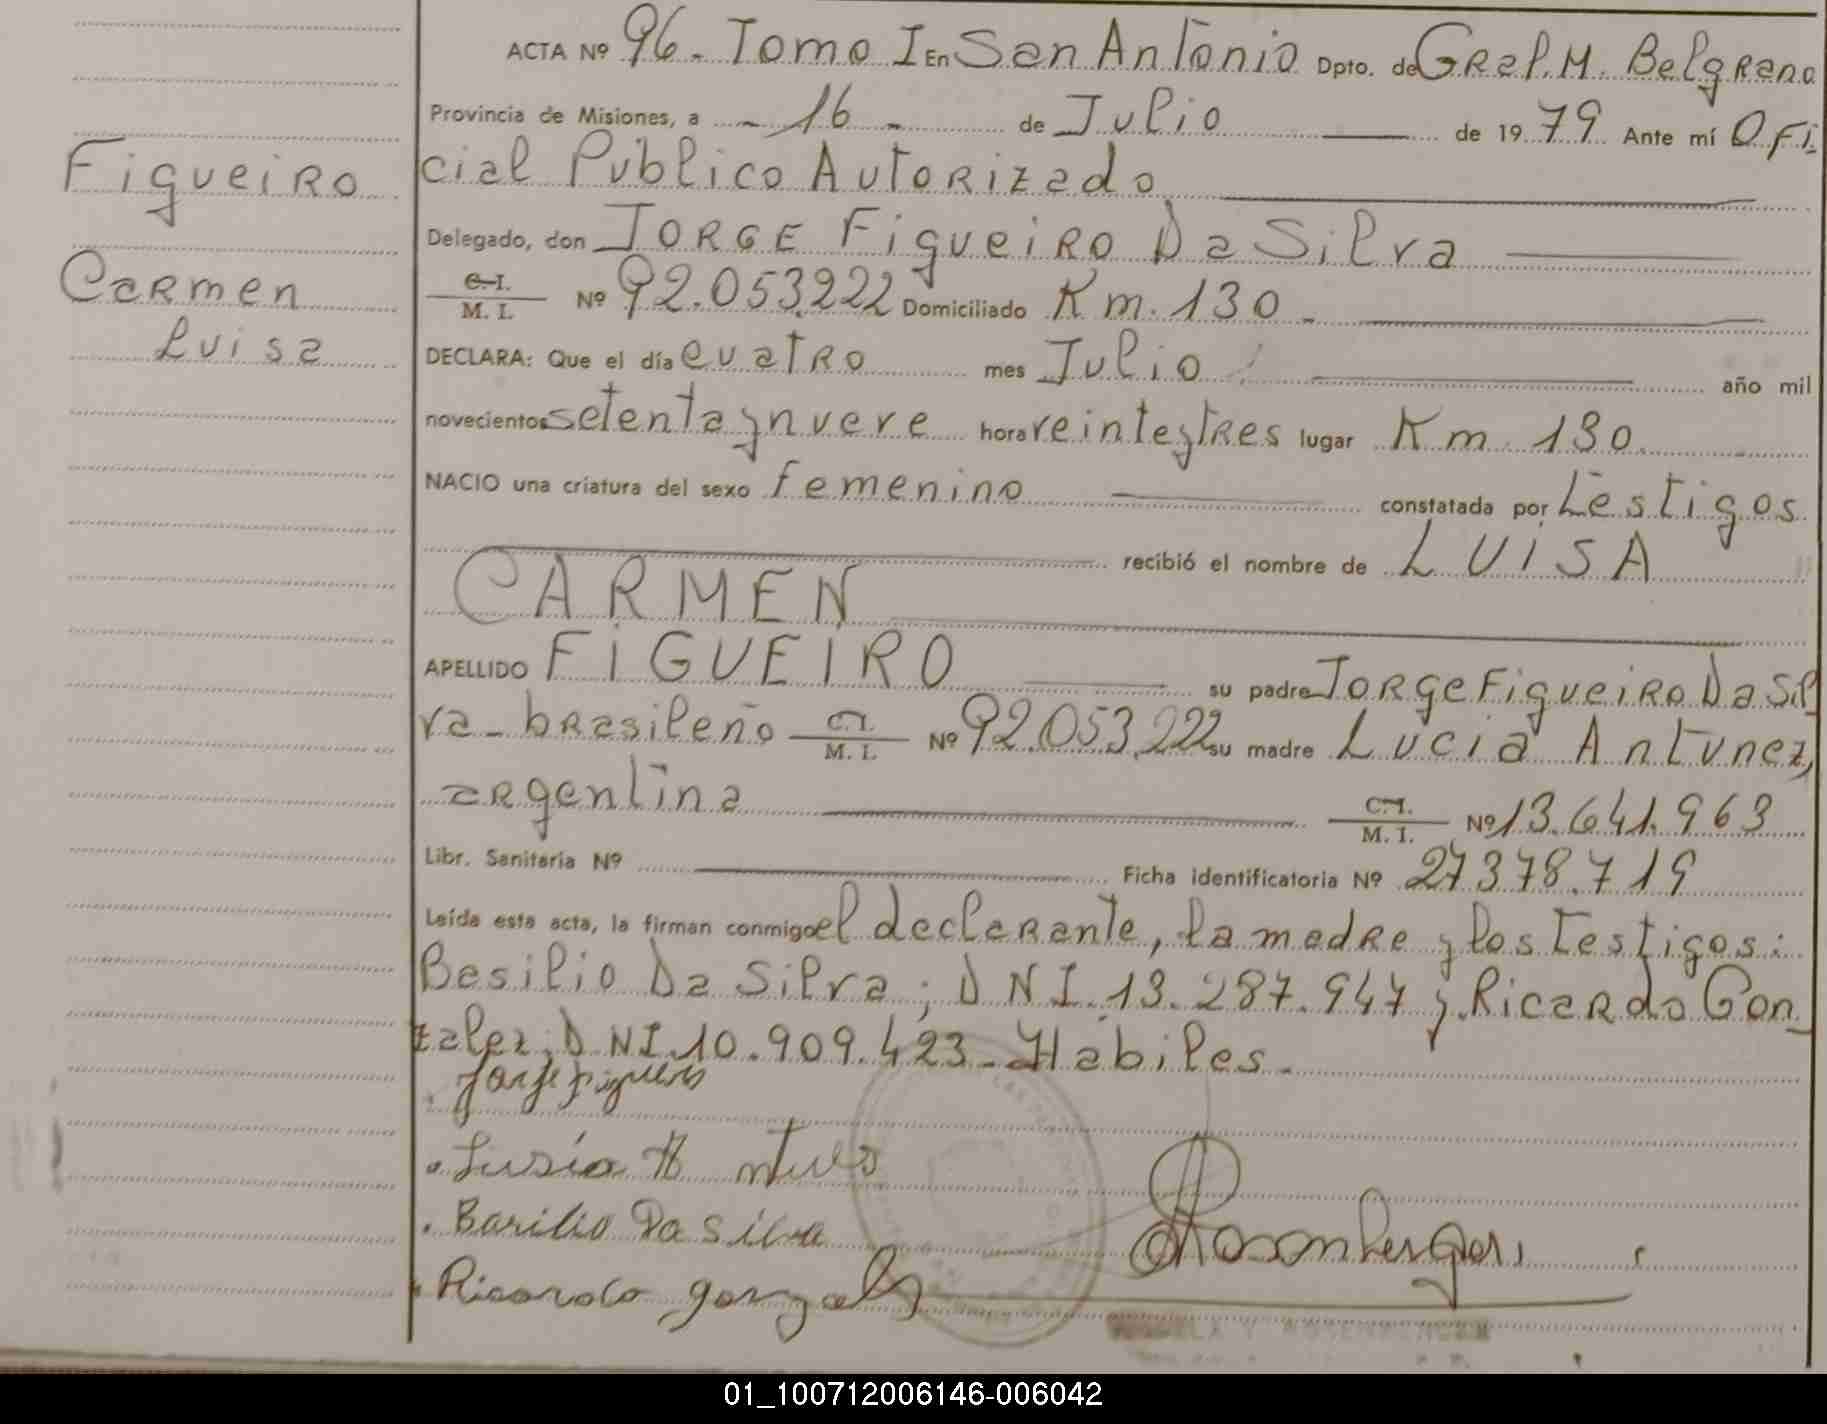 ACTA Nº 96. Tomo I En San Antonio Dpto. de Gral. M. Belgrano
Provincia de Misiones, a - 16 - de Julio de 19 79 Ante mí Ofi
cial Publico Autorizado
Delegado, don JORGE Figueiro Da Silva
C.I. / M. I. Nº 92.053.222 Domiciliado Km. 130 -
DECLARA: Que el día cuatro mes Julio año mil
novecientos setenta y nueve hora veinte y tres lugar Km. 130.
NACIO una criatura del sexo femenino constatada por testigos
recibió el nombre de LUISA
CARMEN
APELLIDO FIGUEIRO su padre Jorge Figueiro Da Sil
va - brasileño C.I. / M. I. Nº 92.053.222 su madre Lucia Antunez,
argentina C.I. / M. I. Nº 13.641.963
Libr. Sanitaria Nº Ficha identificatoria Nº 27378.719
Leída esta acta, la firman conmigo el declarante, la madre y los testigos:
Basilio Da Silva; DNI.13.287.947 y Ricardo Gon
zalez, DNI.10.909.423 - Hábiles -
Figueiro
Carmen
Luisa
Jorge figueiro
Basilio Da Silva
Ricardo gonzalez
01_100712006146-006042